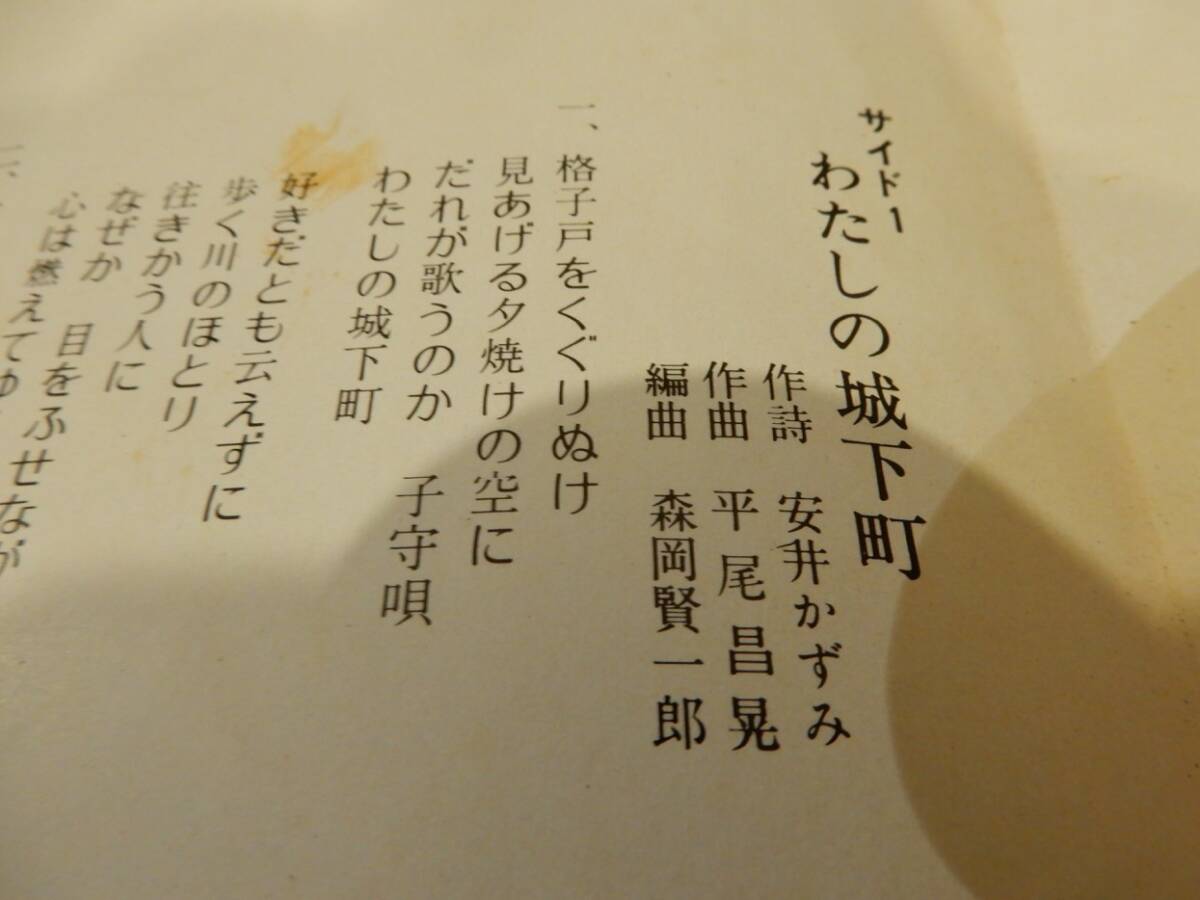 サイド1
わたしの城下町
作詩　安井かずみ
作曲　平尾昌晃
編曲　森岡賢一郎
一、格子戸をくぐりぬけ
見あげる夕焼けの空に
だれが歌うのか　子守唄
わたしの城下町
好きだとも云えずに
歩く川のほとり
往きかう人に
なぜか　目をふせなが
心は燃えてゆ